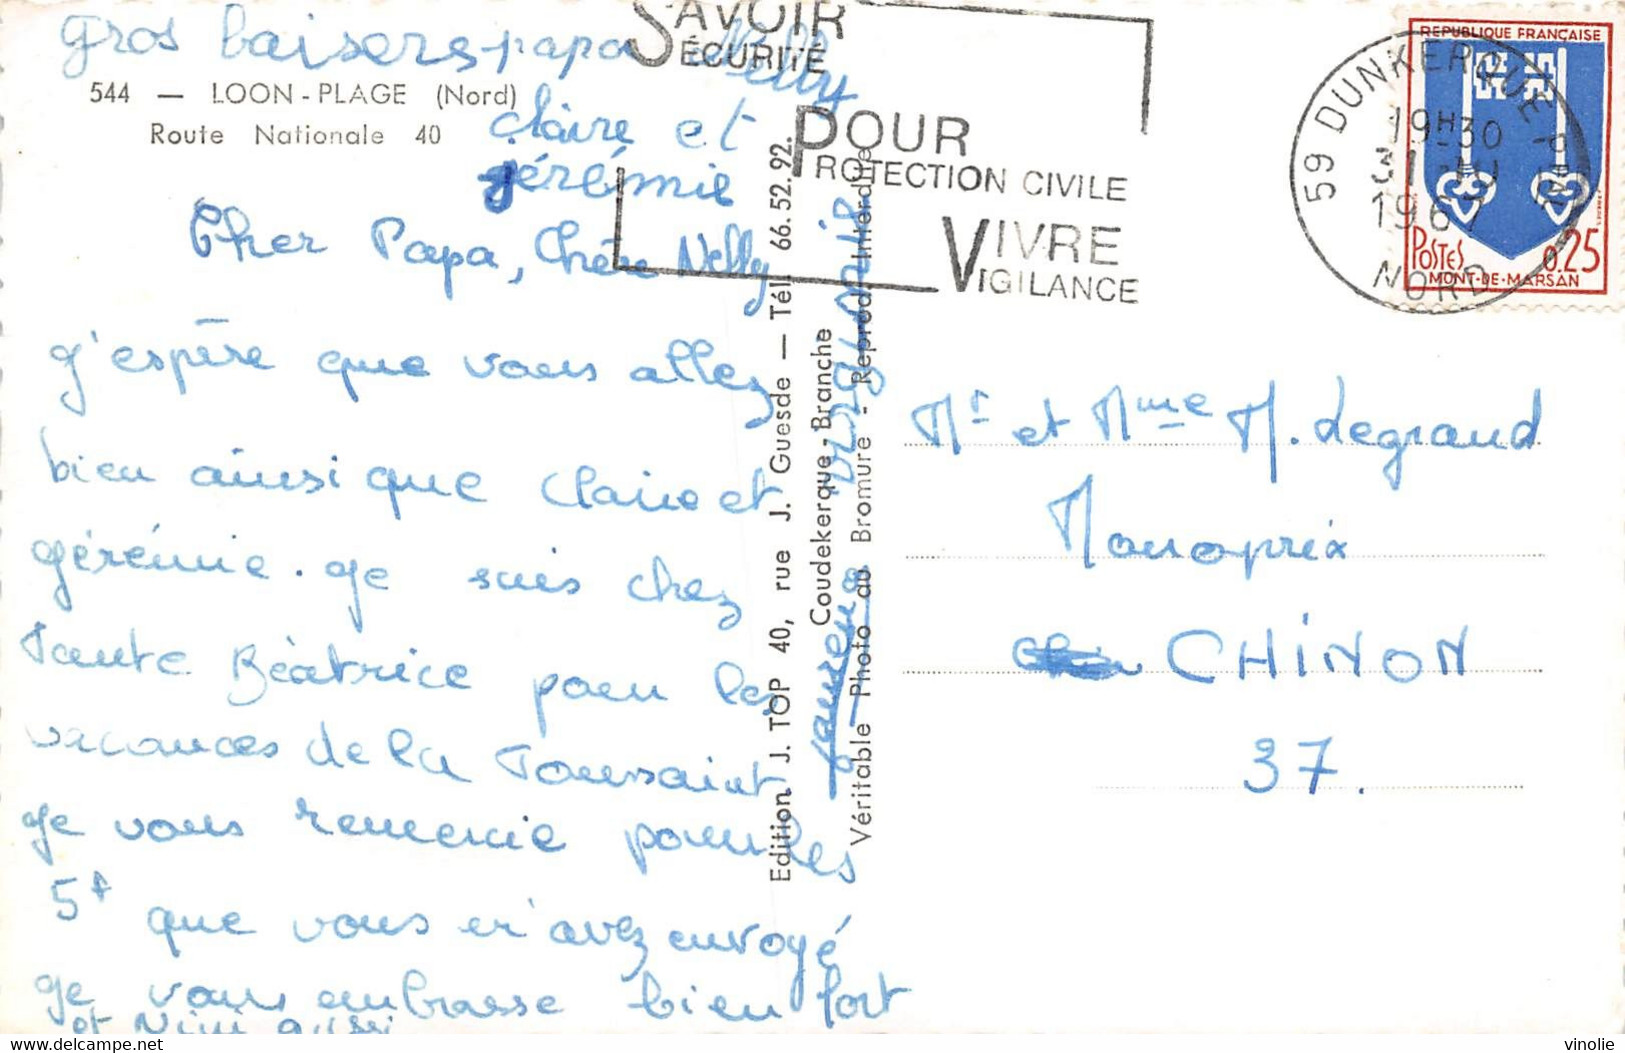 Gros baisers papa Nelly
claire et
gérémie
544 — LOON-PLAGE (Nord)
Route Nationale 40
Cher Papa, Chère Nelly
J'espère que vous allez
bien ainsi que Claire et
gérémie. Je suis chez
Tante Béatrice pour les
vacances de la Toussaint
Je vous remercie pour les
5f que vous m'avez envoyé
Je vous embrasse bien fort
et Nini aussi
Edition J. TOP 40, rue J. Guesde — Tél. 66.52.92.
Coudekerque-Branche
Véritable Photo au Bromure - Reprod. Interdite
SAVOIR
SÉCURITÉ
POUR
PROTECTION CIVILE
VIVRE
VIGILANCE
59 DUNKERQUE
19H30
31 -10
1967
NORD
REPUBLIQUE FRANÇAISE
POSTES
0,25
MONT-DE-MARSAN
Mr et Mme M. Legrand
Monoprix
CHiNON
37.
vinolie